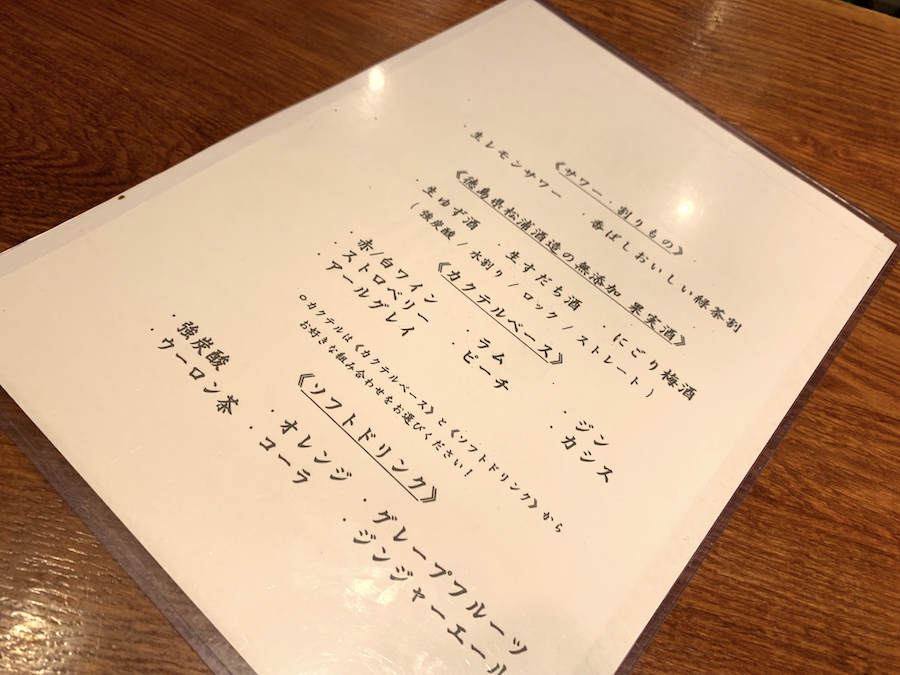 《サワー・割りもの》
・生レモンサワー ・香ばしおいしい緑茶割
《徳島県松浦酒造の無添加 果実酒》
・生ゆず酒 ・生すだち酒 ・にごり梅酒
( 強炭酸 / 水割り / ロック / ストレート )
《カクテルベース》
・赤/白ワイン ・ラム ・ジン
・ストロベリー ・ピーチ ・カシス
・アールグレイ
○カクテルは《カクテルベース》と《ソフトドリンク》から
お好きな組み合わせをお選びください！
《ソフトドリンク》
・強炭酸 ・オレンジ ・グレープフルーツ
・ウーロン茶 ・コーラ ・ジンジャーエール